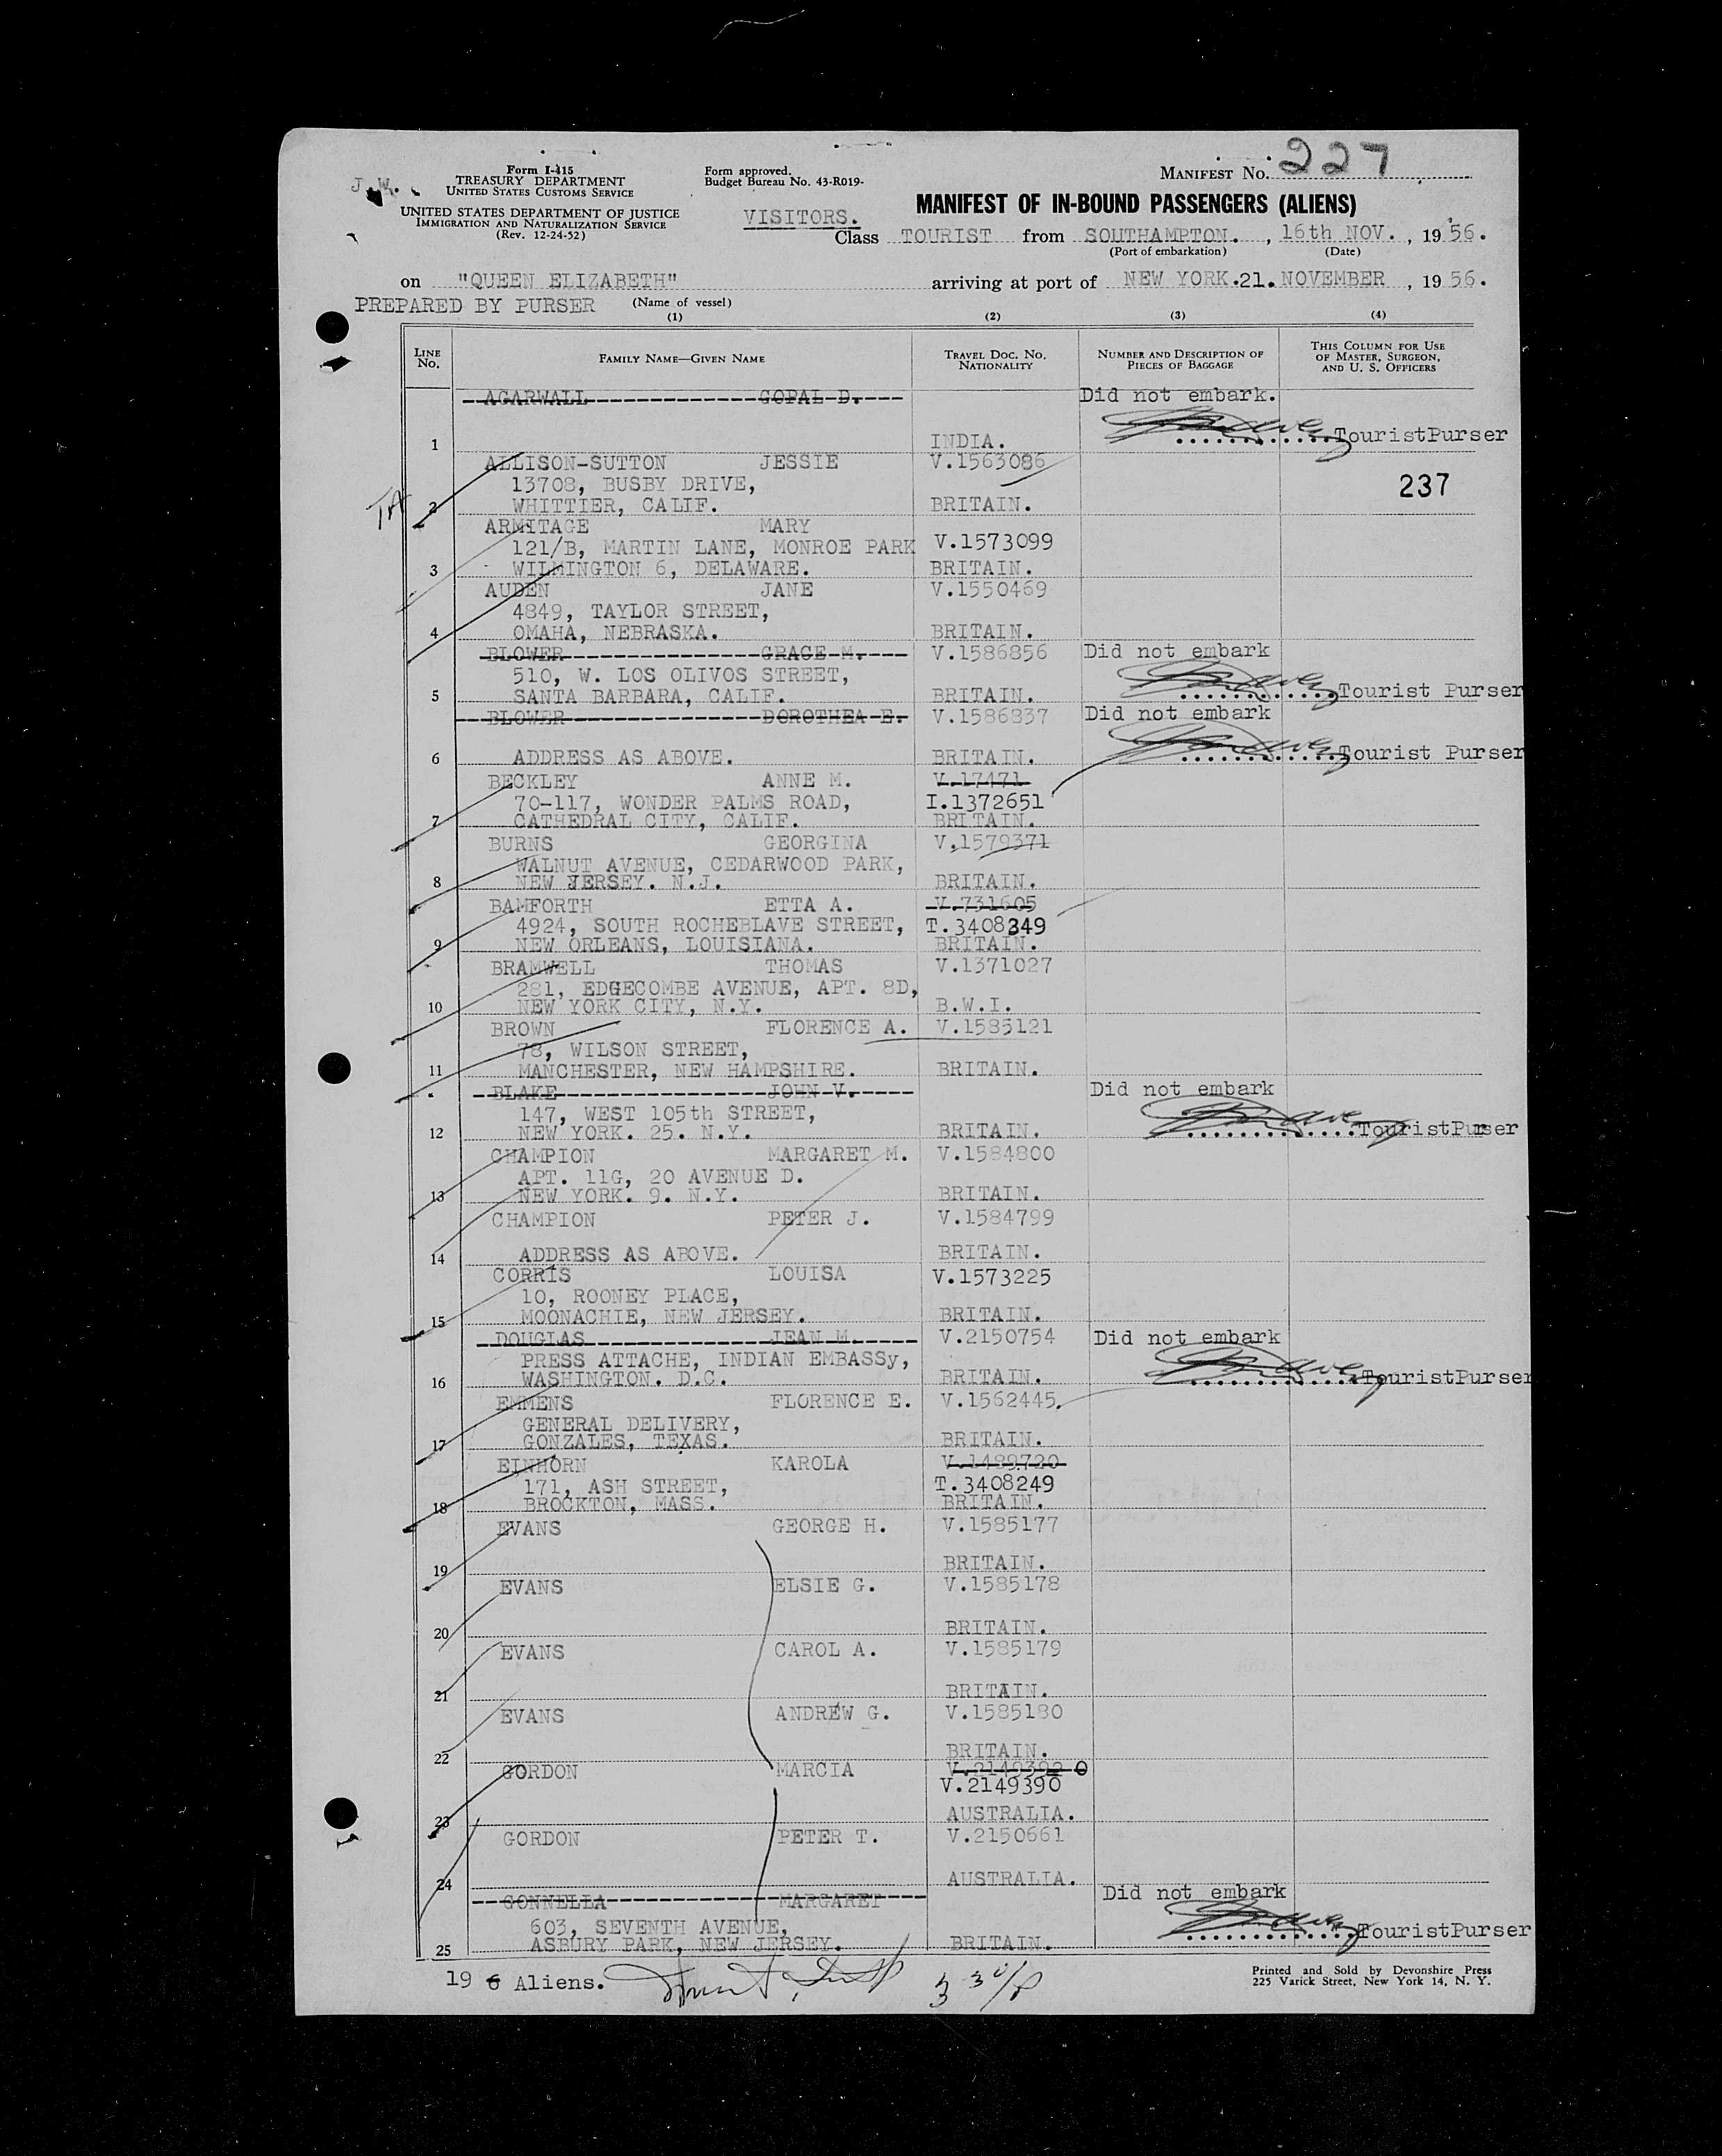 J.W.
Form I-415
TREASURY DEPARTMENT
UNITED STATES CUSTOMS SERVICE
UNITED STATES DEPARTMENT OF JUSTICE
IMMIGRATION AND NATURALIZATION SERVICE
(Rev. 12-24-52)
Form approved.
Budget Bureau No. 43-R019-
MANIFEST No. 227
MANIFEST OF IN-BOUND PASSENGERS (ALIENS)
VISITORS.
Class TOURIST from SOUTHAMPTON. , 16th NOV. , 1956.
(Port of embarkation) (Date)
on "QUEEN ELIZABETH" arriving at port of NEW YORK.21.NOVEMBER , 1956.
PREPARED BY PURSER (Name of vessel)
(1) (2) (3) (4)
LINE No. FAMILY NAME—GIVEN NAME TRAVEL DOC. NO. NATIONALITY NUMBER AND DESCRIPTION OF PIECES OF BAGGAGE THIS COLUMN FOR USE OF MASTER, SURGEON, AND U. S. OFFICERS
AGARWALL GOPAL D. Did not embark.
1 INDIA. TouristPurser
ALLISON-SUTTON JESSIE V.1563086
13708, BUSBY DRIVE, 237
2 WHITTIER, CALIF. BRITAIN.
ARMITAGE MARY
121/B, MARTIN LANE, MONROE PARK V.1573099
3 WILMINGTON 6, DELAWARE. BRITAIN.
AUDEN JANE V.1550469
4849, TAYLOR STREET,
4 OMAHA, NEBRASKA. BRITAIN.
BLOWER GRACE M. V.1586856 Did not embark
510, W. LOS OLIVOS STREET,
5 SANTA BARBARA, CALIF. BRITAIN. Tourist Purser
BLOWER DOROTHEA E. V.1586837 Did not embark
6 ADDRESS AS ABOVE. BRITAIN. Tourist Purser
BECKLEY ANNE M. V.17471
70-117, WONDER PALMS ROAD, I.1372651
7 CATHEDRAL CITY, CALIF. BRITAIN.
BURNS GEORGINA V.1579371
WALNUT AVENUE, CEDARWOOD PARK,
8 NEW JERSEY. N.J. BRITAIN.
BAMFORTH ETTA A. V.731605
4924, SOUTH ROCHEBLAVE STREET, T.3408349
9 NEW ORLEANS, LOUISIANA. BRITAIN.
BRAMWELL THOMAS V.1371027
281, EDGECOMBE AVENUE, APT. 8D,
10 NEW YORK CITY, N.Y. B.W.I.
BROWN FLORENCE A. V.1585121
78, WILSON STREET,
11 MANCHESTER, NEW HAMPSHIRE. BRITAIN.
BLAKE JOHN V. Did not embark
147, WEST 105th STREET,
12 NEW YORK. 25. N.Y. BRITAIN. TouristPurser
CHAMPION MARGARET M. V.1584800
APT. 11G, 20 AVENUE D.
13 NEW YORK. 9. N.Y. BRITAIN.
CHAMPION PETER J. V.1584799
14 ADDRESS AS ABOVE. BRITAIN.
CORRIS LOUISA V.1573225
10, ROONEY PLACE,
15 MOONACHIE, NEW JERSEY. BRITAIN.
DOUGLAS JEAN M. V.2150754 Did not embark
PRESS ATTACHE, INDIAN EMBASSy,
16 WASHINGTON. D.C. BRITAIN. TouristPurser
EMMENS FLORENCE E. V.1562445.
GENERAL DELIVERY,
17 GONZALES, TEXAS. BRITAIN.
EINHORN KAROLA V.1489720
171, ASH STREET, T.3408249
18 BROCKTON, MASS. BRITAIN.
EVANS GEORGE H. V.1585177
19 BRITAIN.
EVANS ELSIE G. V.1585178
20 BRITAIN.
EVANS CAROL A. V.1585179
21 BRITAIN.
EVANS ANDREW G. V.1585180
22 BRITAIN.
GORDON MARCIA
V.2149390
23 AUSTRALIA.
GORDON PETER T. V.2150661
24 AUSTRALIA.
GONNELLA MARGARET Did not embark
603, SEVENTH AVENUE,
25 ASBURY PARK, NEW JERSEY. BRITAIN. TouristPurser
19 6 Aliens.
Printed and Sold by Devonshire Press
225 Varick Street, New York 14, N. Y.